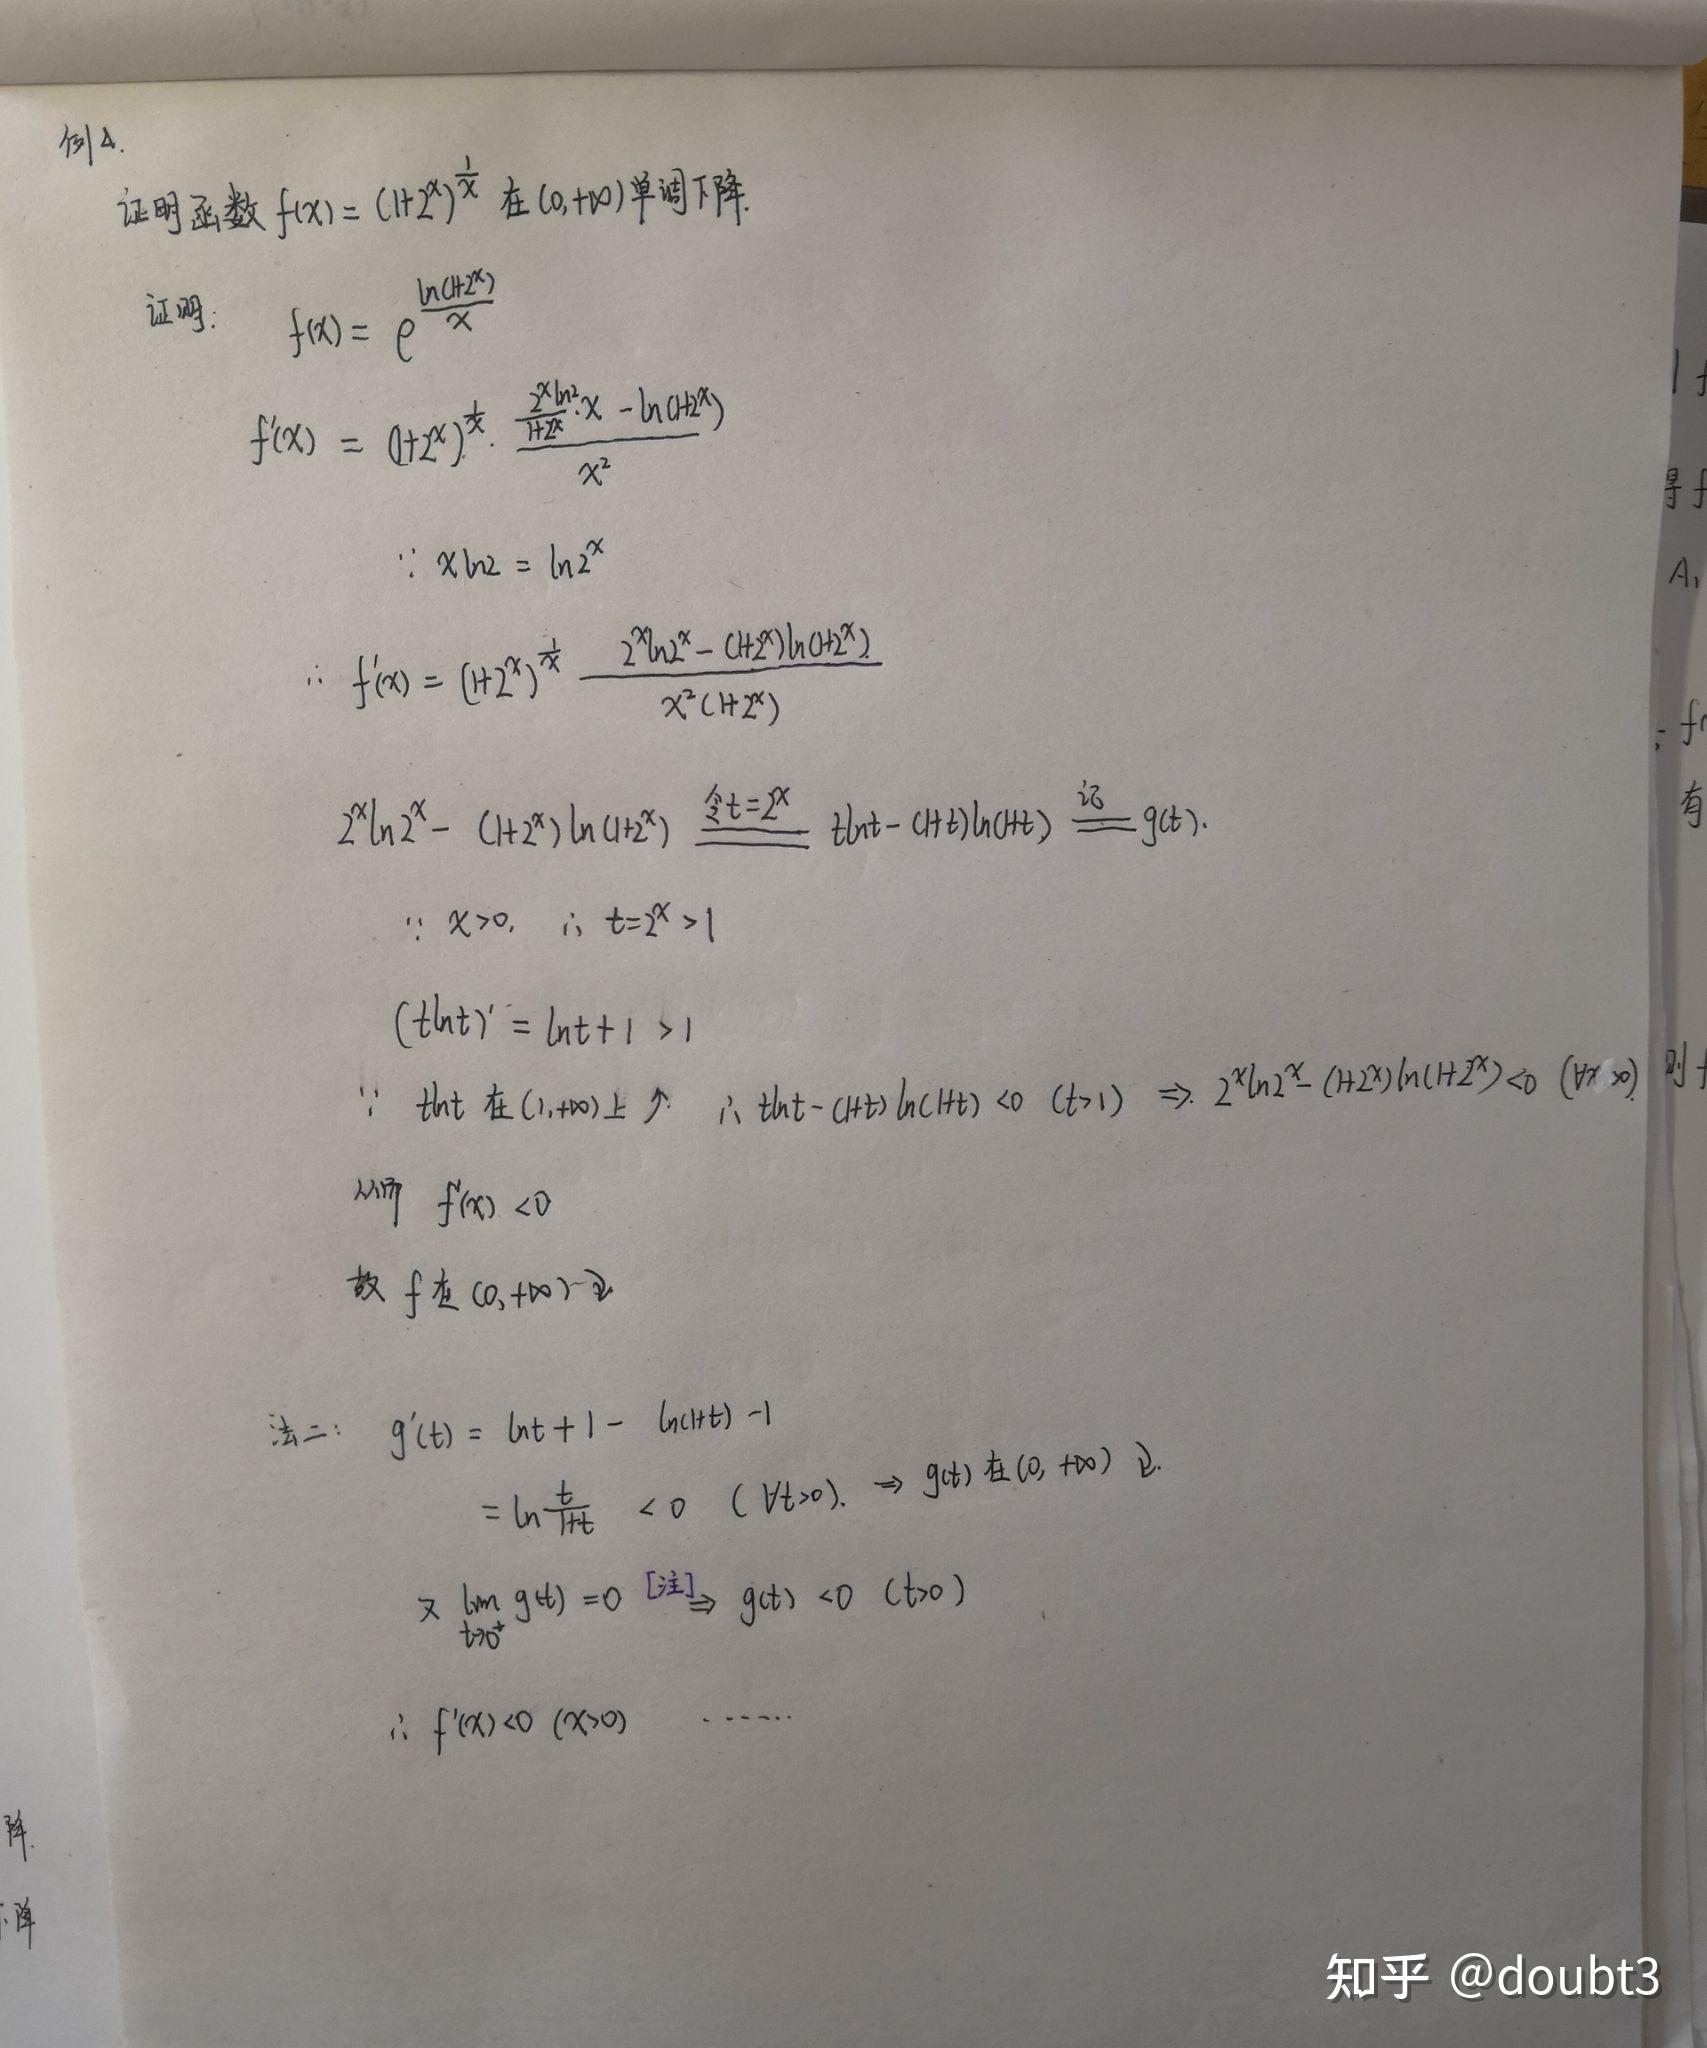 例4.
证明函数 f(x) = (1+2^x)^{1/x} 在 (0,+∞) 单调下降.
证明: f(x) = e^{ln(1+2^x)/x}
f'(x) = (1+2^x)^{1/x} · \frac{\frac{2^x ln2}{1+2^x}·x - ln(1+2^x)}{x^2}
∵ xln2 = ln2^x
∴ f'(x) = (1+2^x)^{1/x} \frac{2^x ln2^x - (1+2^x)ln(1+2^x)}{x^2(1+2^x)}
2^x ln2^x - (1+2^x)ln(1+2^x) 令t=2^x = tlnt - (1+t)ln(1+t) 记 = g(t).
∵ x>0, ∴ t=2^x>1
(tlnt)' = lnt+1 >1
∵ tlnt 在(1,+∞)上↗ ∴ tlnt-(1+t)ln(1+t) <0 (t>1) ⇒ 2^x ln2^x - (1+2^x)ln(1+2^x)<0 (∀x>0).
从而 f'(x) <0
故 f 在 (0,+∞) ↘
法二: g'(t) = lnt+1 - ln(1+t) -1
= ln\frac{t}{1+t} <0 (∀t>0). ⇒ g(t) 在(0,+∞) ↘.
又 lim_{t→0^+} g(t) =0 [注] ⇒ g(t) <0 (t>0)
∴ f'(x)<0 (x>0) ······
降.
降
得 f
A,
有
则 f
知乎 @doubt3